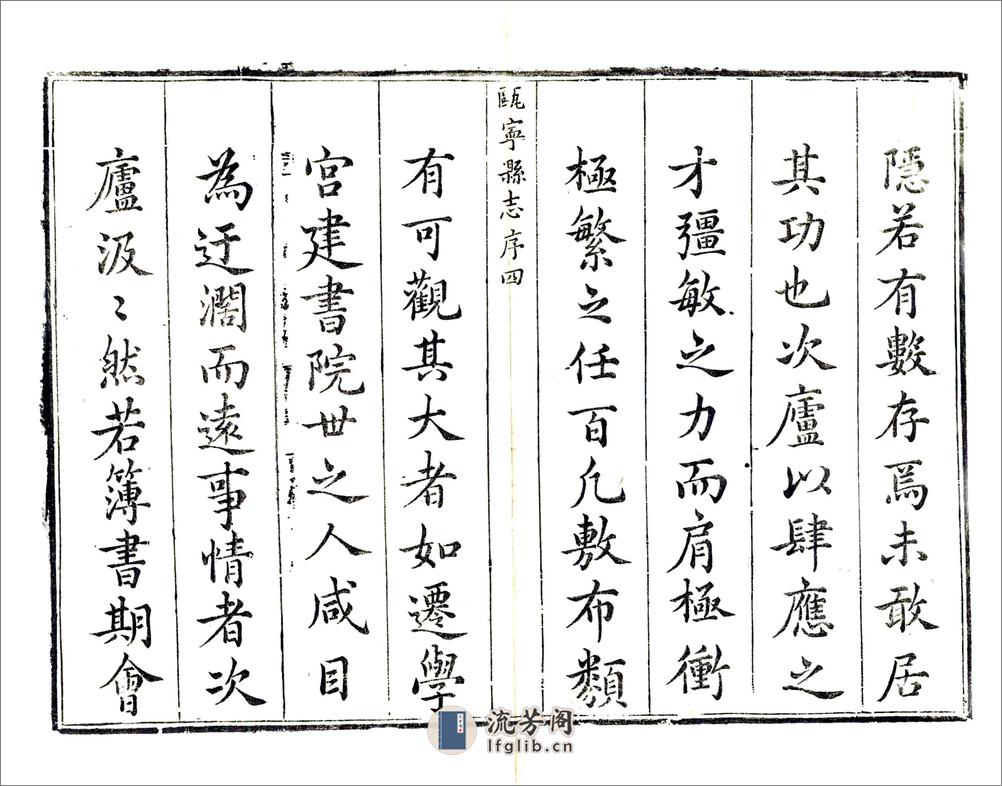 隱若有數存焉未敢居
其功也次廬以肆應之
才彊敏之力而肩極衝
極繁之任百凡敷布類
甌寧縣志序四
有可觀其大者如遷學
宮建書院世之人咸目
為迂濶而遠事情者次
廬汲〻然若簿書期會
流芳阁
lfglib.cn